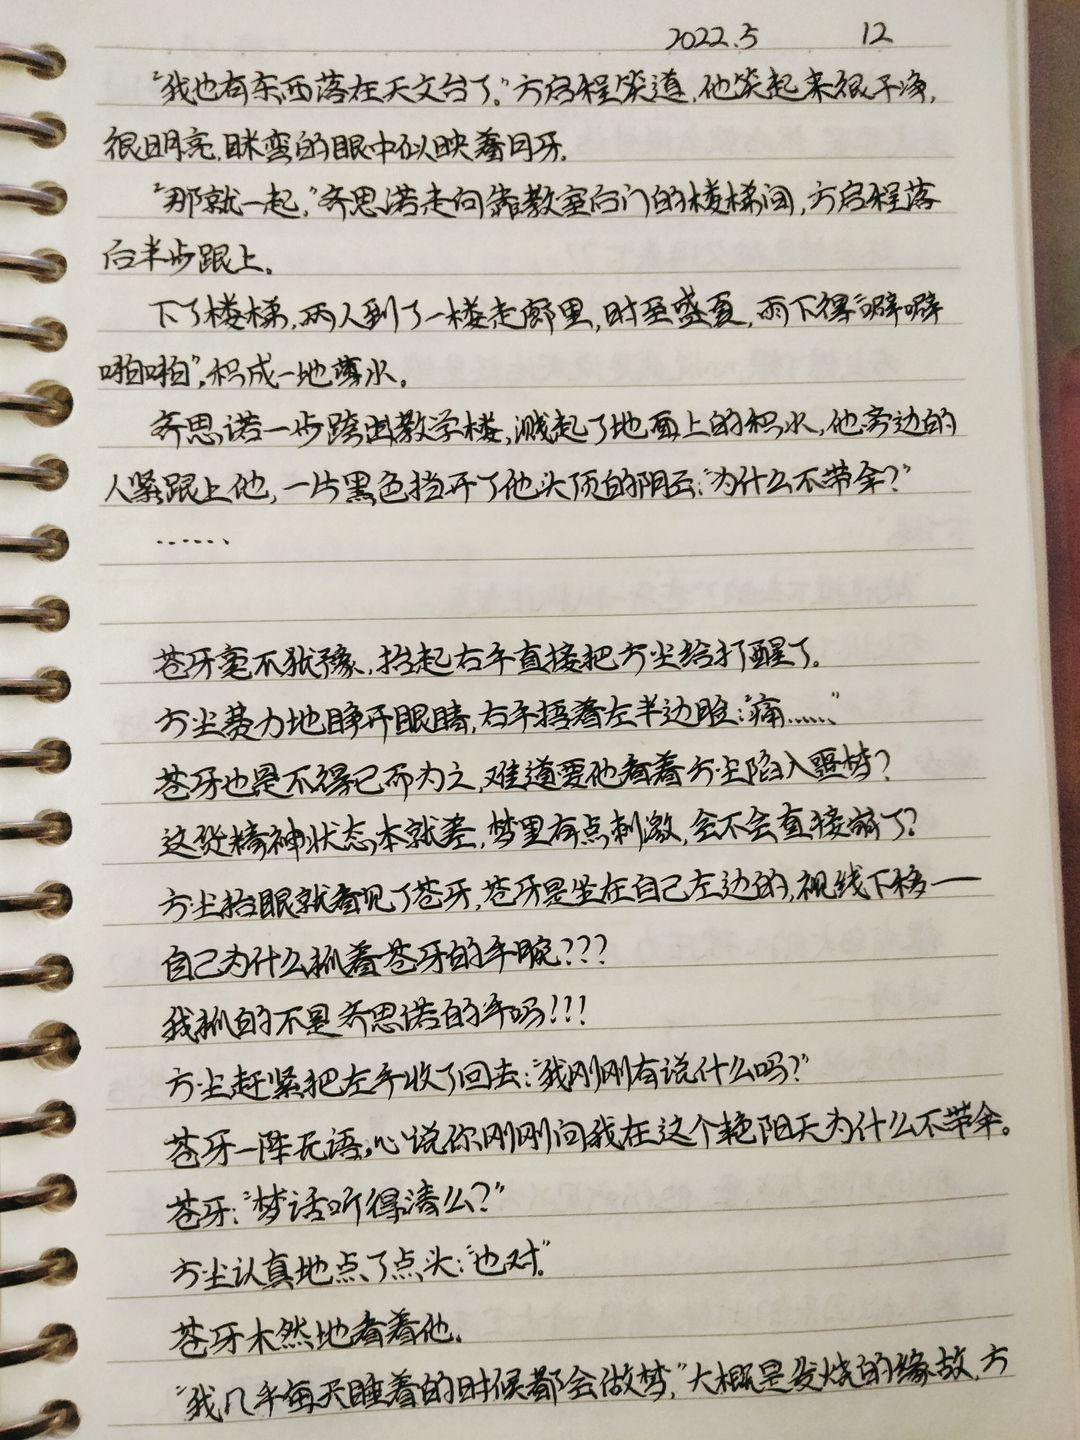 2022.5 12
“我也有东西落在天文台了。”方启程笑道，他笑起来很干净，
很明亮，眯弯的眼中似映着月牙。
“那就一起，”齐思诺走向靠教室后门的楼梯间，方启程落
后半步跟上。
下了楼梯，两人到了一楼走廊里，时至盛夏，雨下得“噼噼
啪啪”，积成一地薄水。
齐思诺一步跨出教学楼，溅起了地面上的积水，他旁边的
人紧跟上他，一片黑色挡开了他头顶的阴云：“为什么不带伞？”
……、
苍牙毫不犹豫，抬起右手直接把方尘给打醒了。
方尘费力地睁开眼睛，右手捂着左半边脸：“痛……”
苍牙也是不得已而为之，难道要他看着方尘陷入噩梦？
这货精神状态本就差，梦里有点刺激，会不会直接崩了？
方尘抬眼就看见了苍牙，苍牙是坐在自己左边的，视线下移——
自己为什么抓着苍牙的手腕？？？
我抓的不是齐思诺的手吗！！！
方尘赶紧把左手收了回去：“我刚刚有说什么吗？”
苍牙一阵无语，心说你刚刚问我在这个艳阳天为什么不带伞。
苍牙：“梦话听得清么？”
方尘认真地点了点头：“也对。”
苍牙木然地看着他。
“我几乎每天睡着的时候都会做梦，”大概是发烧的缘故，方